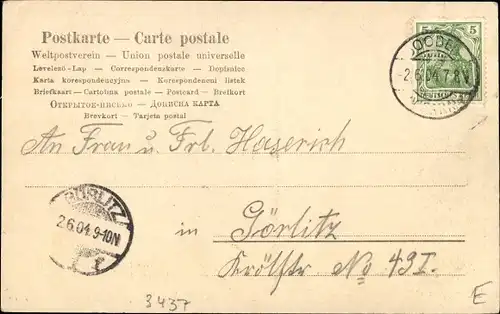 Postkarte — Carte postale
Weltpostverein — Union postale universelle
Levelező-Lap — Correspondenzkarte — Dopisnice
Karta korespondencyjna — Korespondenční lístek
Briefkaart — Cartolina postale — Postcard — Brefkort
Открытое письмо — Дописна карта
Brevkort — Tarjeta postal
5 5
2.6.04. 7-8 V.
An Frau u. Frl. Haserich
GÖRLITZ
2.6.04. 9-10N
in Görlitz
Krölstr. No 49 I.
3437
E